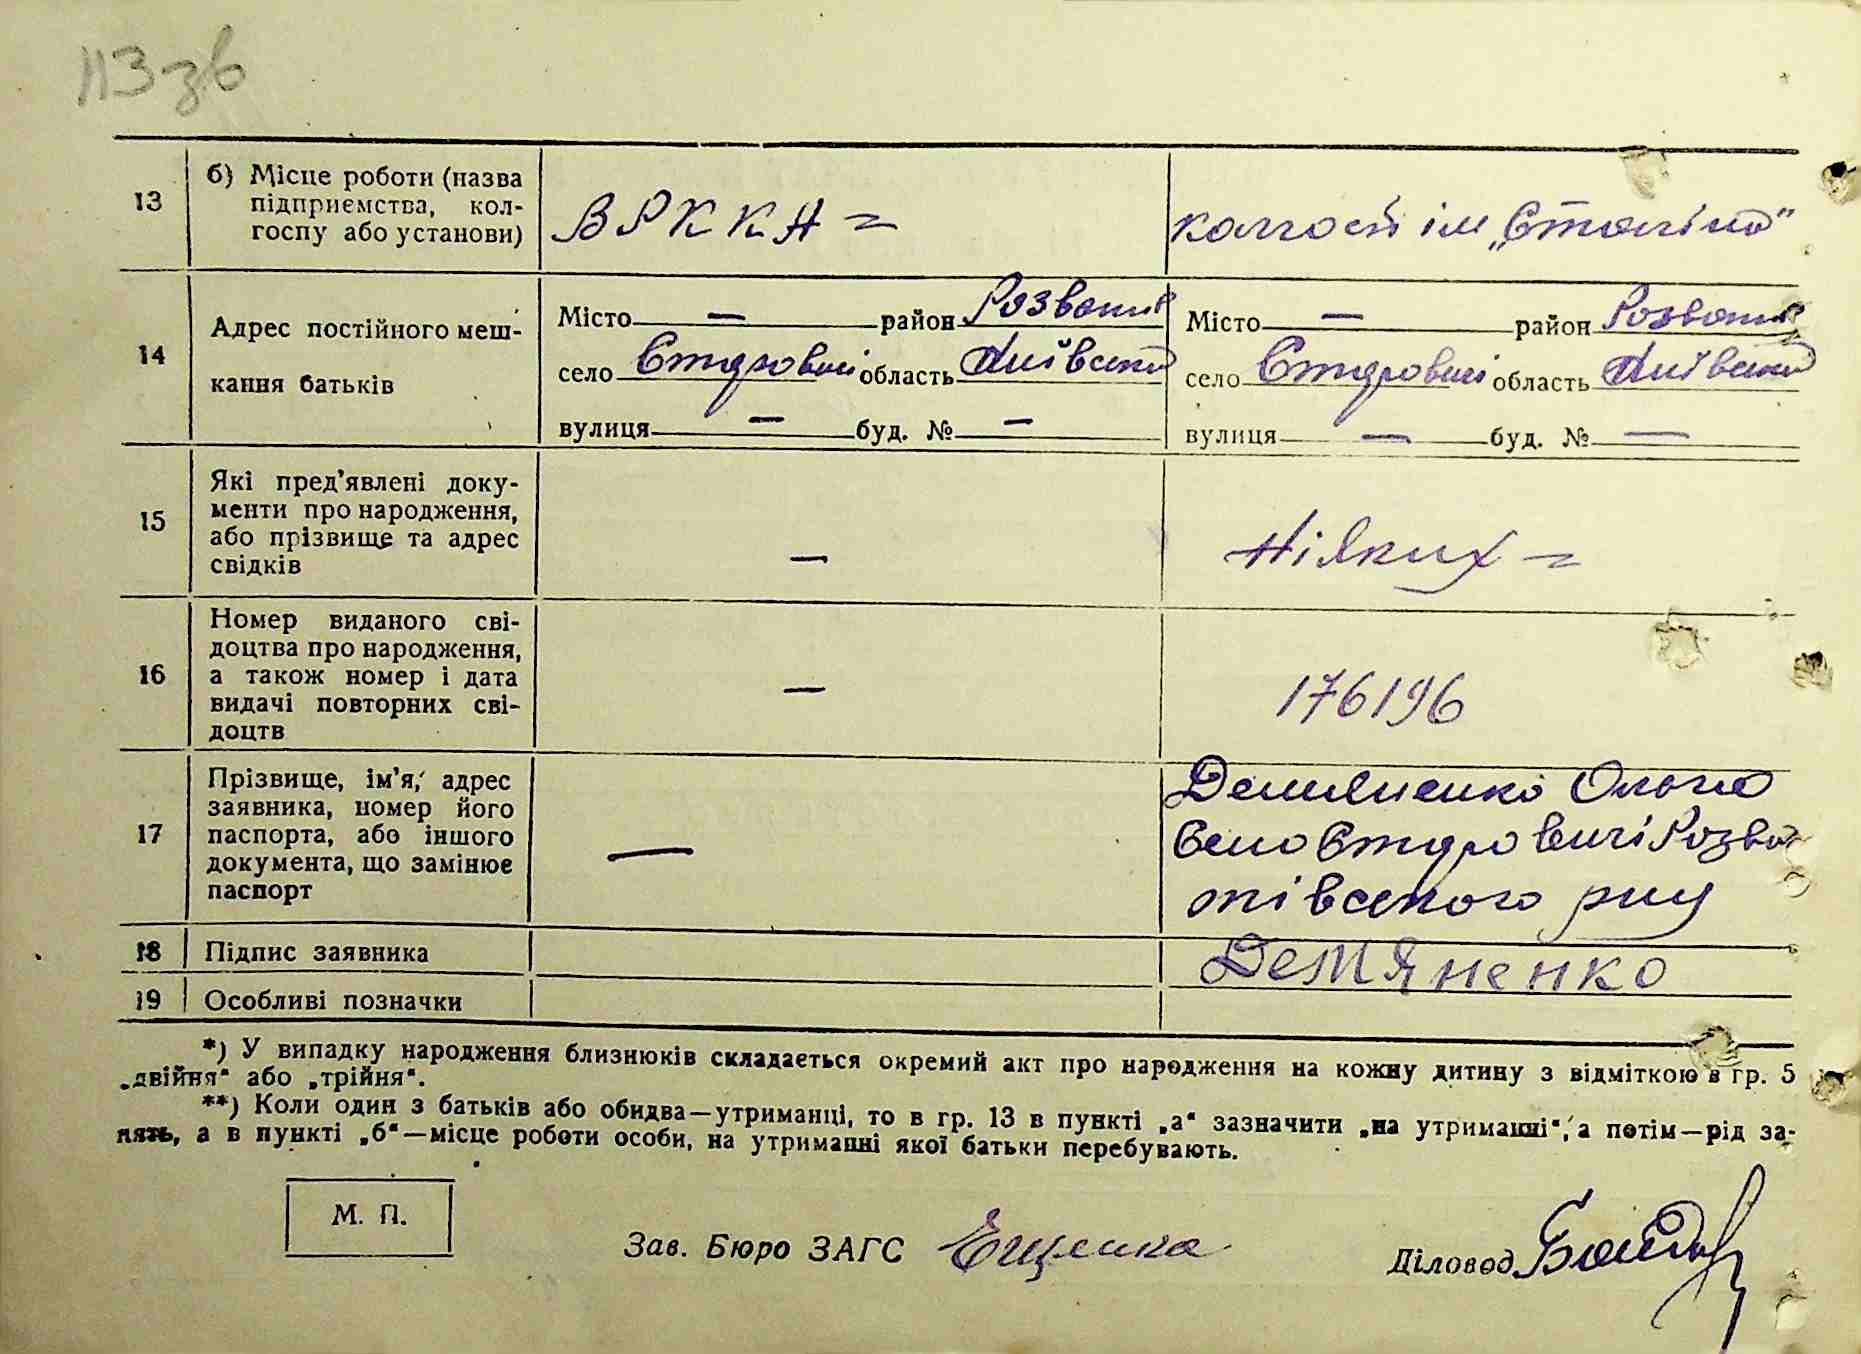 113 зв
13 б) Місце роботи (назва
підприємства, кол-
госпу або установи)
В РККА =
колгосп ім „Сталіна"
14 Адрес постійного меш-
кання батьків
Місто — район Розваж
село Стдровичі область Київська
вулиця — буд. № —
Місто — район Розваж
село Стдровичі область Київська
вулиця — буд. № —
15 Які пред'явлені доку-
менти про народження,
або прізвище та адрес
свідків
—
Ніяких =
16 Номер виданого сві-
доцтва про народження,
а також номер і дата
видачі повторних сві-
доцтв
—
176196
17 Прізвище, ім'я, адрес
заявника, номер його
паспорта, або іншого
документа, що замінює
паспорт
—
Демяненко Ольга
село
18 Підпис заявника
Демяненко
19 Особливі позначки
*) У випадку народження близнюків складається окремий акт про народження на кожну дитину з відміткою в гр. 5
„двійня“ або „трійня“.
**) Коли один з батьків або обидва—утриманці, то в гр. 13 в пункті „а“ зазначити „на утриманні“, а потім—рід за-
нять, а в пункті „б“—місце роботи особи, на утриманні якої батьки перебувають.
М. П.
Зав. Бюро ЗАГС
Діловод